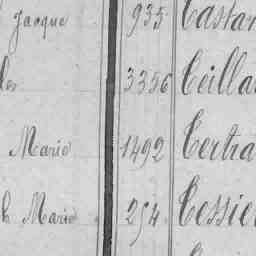 Jacque 935 Castan
les 3356 Ceilla
Marie 1492 Certra
h Marie 254 Cessier